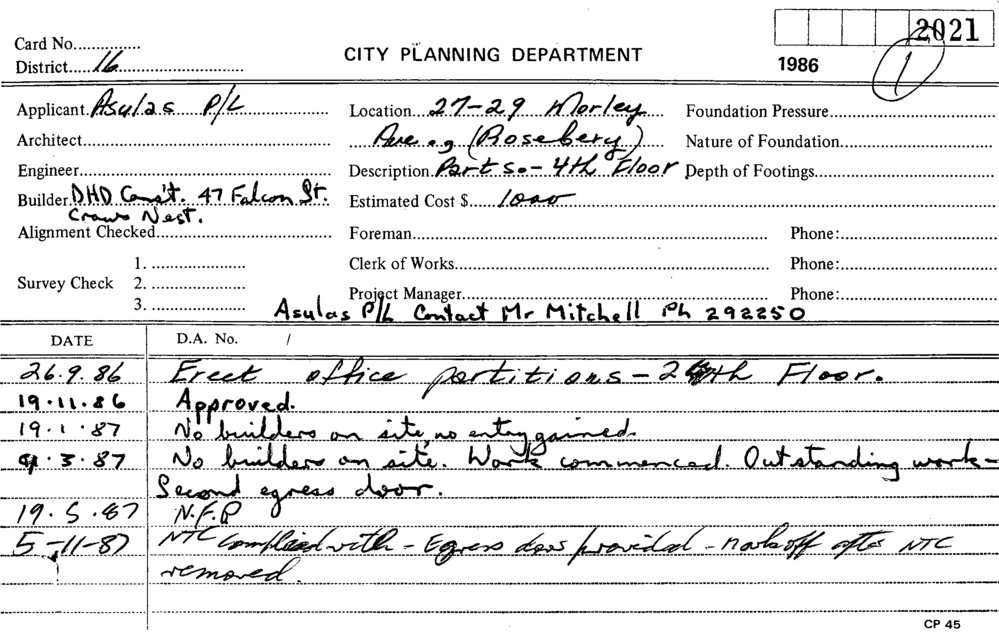 2021
Card No..............
CITY PLANNING DEPARTMENT
District.....16..........................
1986
1
Applicant. Asulas P/L
Location... 27-29 Morley
Foundation Pressure
Architect
Ave. (Rosebery)
Nature of Foundation
Engineer
Description. Parts. - 4th Floor
Depth of Footings
Builder DHD Const. 47 Falcon St.
Estimated Cost $ 1000
Crows Nest.
Alignment Checked
Foreman
Phone:
Survey Check
1.
2.
3.
Clerk of Works
Phone:
Project Manager
Phone:
Asulas P/L Contact Mr Mitchell Ph 292250
DATE D.A. No. /
26.9.86 Erect office partitions - 4th Floor.
19.11.86 Approved.
19.1.87 No builders on site, no entry gained.
4.3.87 No builder on site. Work commenced. Outstanding work -
Second egress door.
19.5.87 N.F.P
5-11-87 NTC Complied with - Egress door provided - markoff after NTC
removed.
CP 45